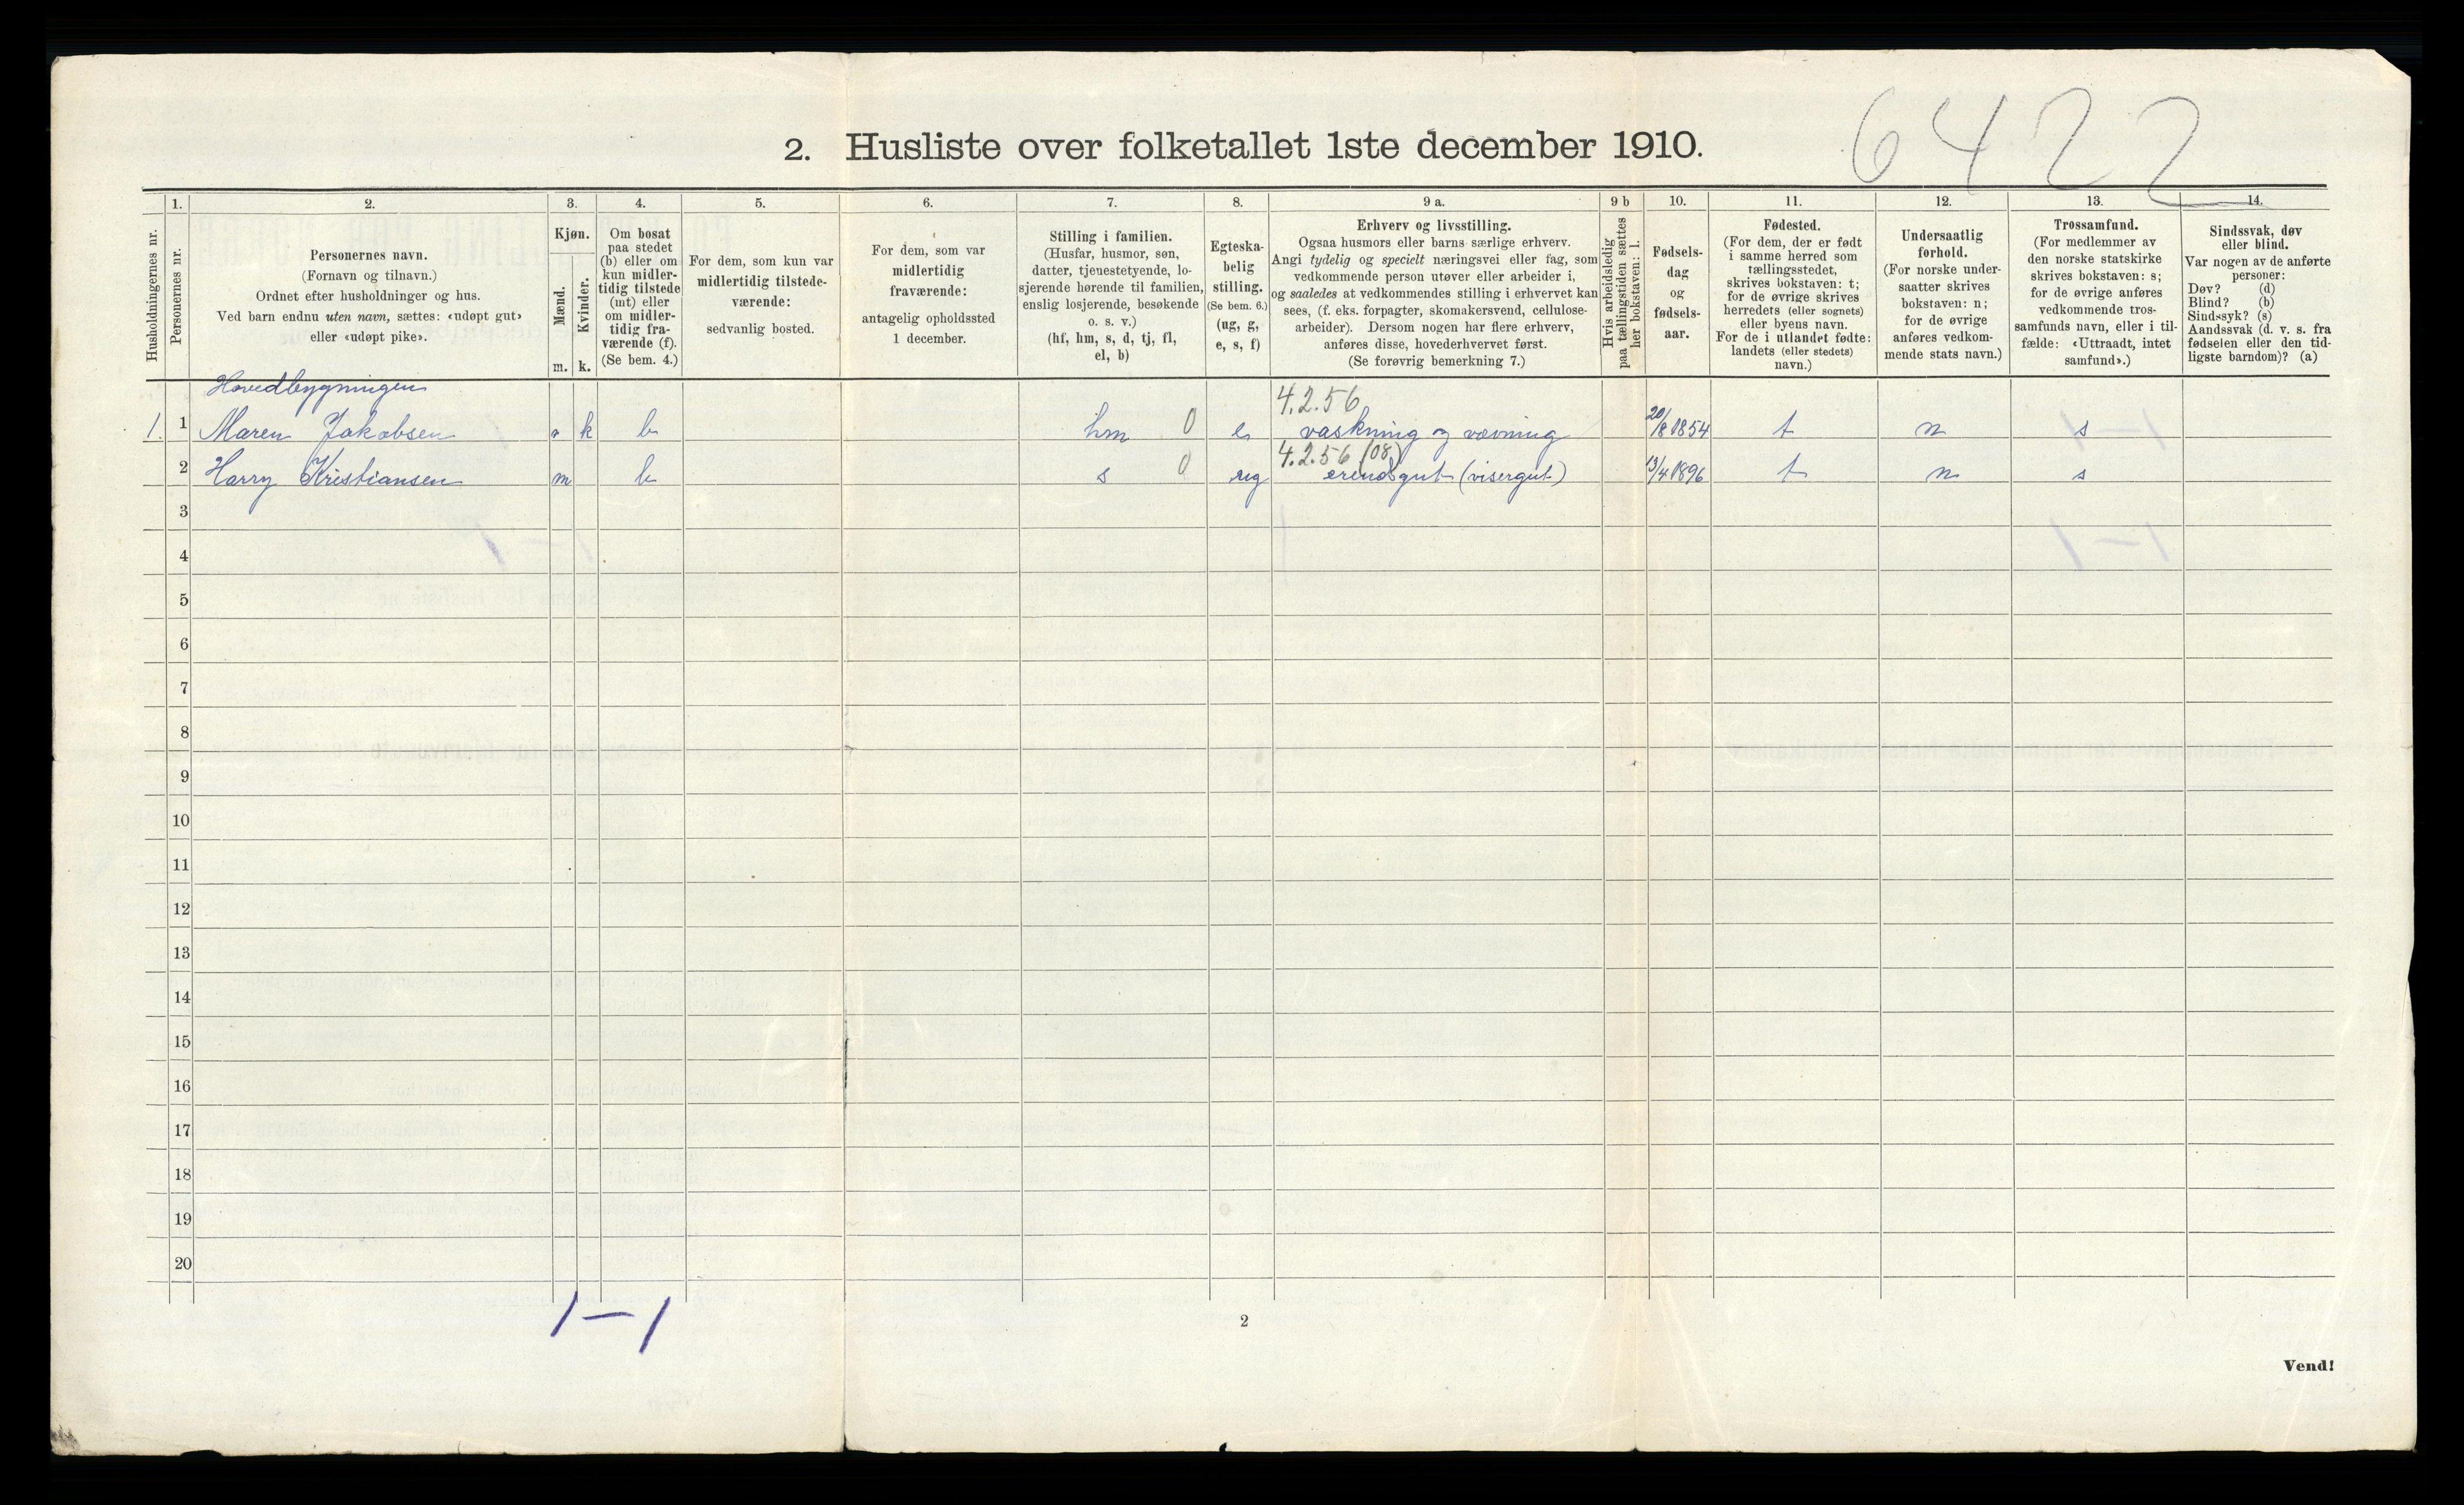 6422
2. Husliste over folketallet 1ste december 1910.
1. 2. 3. 4. 5. 6. 7. 8. 9 a. 9 b 10. 11. 12. 13. 14.
Husholdningernes nr.
Personernes nr.
Personernes navn.
(Fornavn og tilnavn.)
Ordnet efter husholdninger og hus.
Ved barn endnu uten navn, sættes: «udøpt gut»
eller «udøpt pike».
Kjøn.
Mænd.
Kvinder.
m. k.
Om bosat
paa stedet
(b) eller om
kun midler-
tidig tilstede
(mt) eller
om midler-
tidig fra-
værende (f).
(Se bem. 4.)
For dem, som kun var
midlertidig tilstede-
værende:
sedvanlig bosted.
For dem, som var
midlertidig
fraværende:
antagelig opholdssted
1 december.
Stilling i familien.
(Husfar, husmor, søn,
datter, tjenestetyende, lo-
sjerende hørende til familien,
enslig losjerende, besøkende
o. s. v.)
(hf, hm, s, d, tj, fl,
el, b)
Egteska-
belig
stilling.
(Se bem. 6.)
(ug, g,
e, s, f)
Erhverv og livsstilling.
Ogsaa husmors eller barns særlige erhverv.
Angi tydelig og specielt næringsvei eller fag, som
vedkommende person utøver eller arbeider i,
og saaledes at vedkommendes stilling i erhvervet kan
sees, (f. eks. forpagter, skomakersvend, cellulose-
arbeider). Dersom nogen har flere erhverv,
anføres disse, hovederhvervet først.
(Se forøvrig bemerkning 7.)
Hvis arbeidsledig
paa tællingstiden sættes
her bokstaven: l.
Fødsels-
dag
og
fødsels-
aar.
Fødested.
(For dem, der er født
i samme herred som
tællingsstedet,
skrives bokstaven: t;
for de øvrige skrives
herredets (eller sognets)
eller byens navn.
For de i utlandet fødte:
landets (eller stedets)
navn.)
Undersaatlig
forhold.
(For norske under-
saatter skrives
bokstaven: n;
for de øvrige
anføres vedkom-
mende stats navn.)
Trossamfund.
(For medlemmer av
den norske statskirke
skrives bokstaven: s;
for de øvrige anføres
vedkommende tros-
samfunds navn, eller i til-
fælde: «Uttraadt, intet
samfund».)
Sindssvak, døv
eller blind.
Var nogen av de anførte
personer:
Døv? (d)
Blind? (b)
Sindssyk? (s)
Aandssvak (d. v. s. fra
fødselen eller den tid-
ligste barndom)? (a)
Hovedbygningen
4.2.56
1. 1 Maren Jakobsen k b hm 0 e vaskning og vævning 20/8 1854 t n s
4.2.56 (08)
2 Harry Kristiansen m b s 0 ug erendsgut (visergut) 13/4 1896 t n s
3
4
5
6
7
8
9
10
11
12
13
14
15
16
17
18
19
20
1–1
2
Vend!